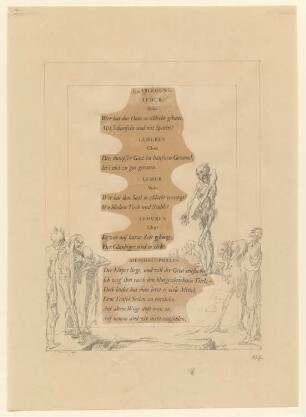 GRABLEGUNG
LEMUR
Solo
Wer hat das Haus so schlecht gebaut,
Mit Schaufeln und mit Spaten?
LEMUREN
Chor
Dir, dumpfer Gast im hänfnen Gewand,
Ist's viel zu gut geraten.
LEMUR
Solo
Wer hat den Saal so schlecht versorgt?
Wo blieben Tisch und Stühle?
LEMUREN
Chor
Es war auf kurze Zeit geborgt;
Der Gläubiger sind so viele.
MEPHISTOPHELES
Der Körper liegt, und will der Geist entfliehn,
Ich zeig ihm rasch den blutgeschriebnen Titel; –
Doch leider hat man jetzt so viele Mittel,
Dem Teufel Seelen zu entziehn.
Auf altem Wege stößt man an,
Auf neuem sind wir nicht empfohlen;